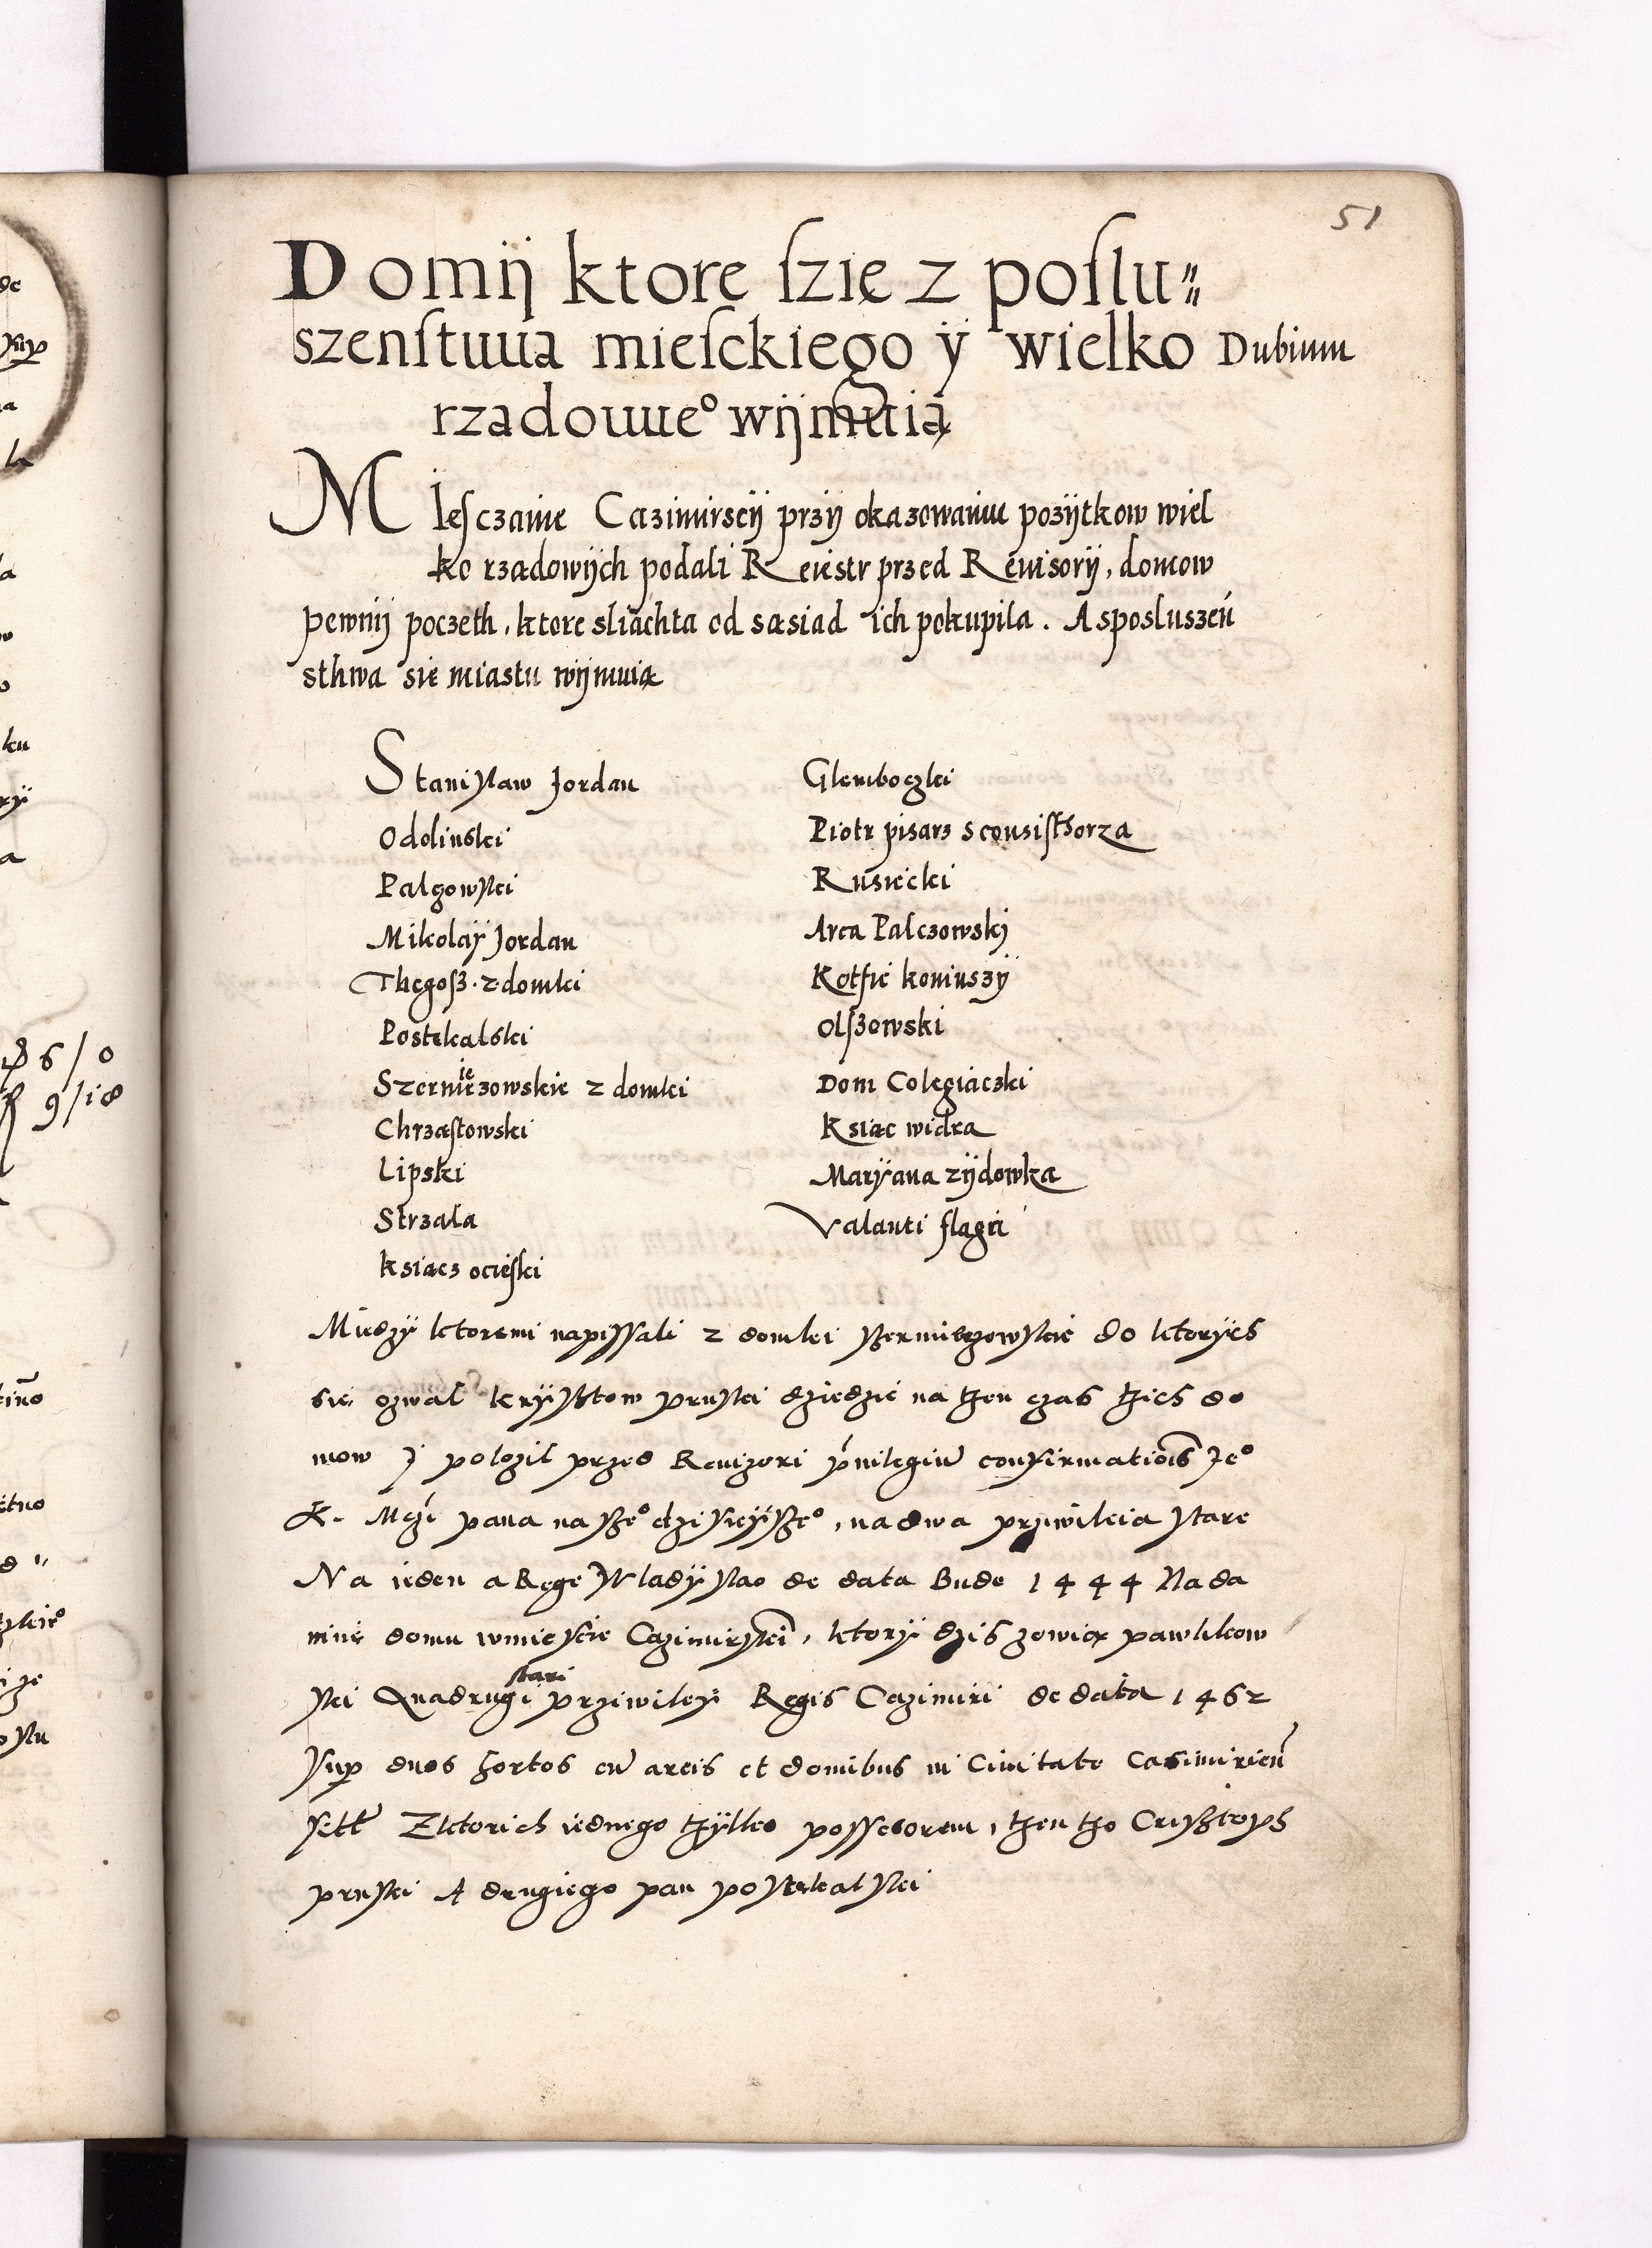 51
Domij ktore ſzię z poſlu⸗
szenſtwa mieſckiego ÿ wielko Dubium
rzadowe° wijmuią
Mieſczanie Cazimirscij przij okazowaniu pozijtkow wiel
ko rzadowijch podali Reiestr przed Reuisorij, domow
pewnij poczeth, ktore sliachta od sąsiad ich pokupila. A sposluszeń
sthwa sie miastu wijmuią
Stanislaw Jordan
Odolinski
Palczowski
Mikolaÿ Jordan
Thegosz z domki
Postekalski
Szerniezowskie z domki
Chrząſtowski
Lipski
Strzala
ksiącz ocieſki
Glemboczki
Piotr pisarz s consiſthorza
Rusiecki
Arca Palczowskj
Kotfic koniuszÿ
Olſzowski
Dom Colegiaczki
Ksiąc widra
Marÿana zijdowka
Valanti flagii
Miedzÿ ktoremi napissali z domki szermierzowskie do ktorÿch
sie ozwal krÿsztow pruski dziedzic na then czas thich do
mow j polozil przed Reuizori pŕuilegiū confirmatiōis Je°
K. Mczi pana nasze° dzisieÿsze°, na dwa prziwileia stare
Na ieden a Rege Wladÿslao de data Bude 1444 Nada
nie domu wmiescie Cazimirskī, ktorÿ dzis zowią pawlikow
ski Quadrugi stari prziwileÿ Regis Cazimiri de data 1462
sup duos hortos cū areis et domibus in Ciuitate Casimirieñ
Zktorich iednego thÿlko possesorem, then tho Crisztoph
pruski A drugiego pan postekalski